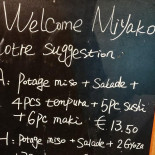 Welcome Miyako
Notre Suggestion:
A: Potage miso + Salade +
4 pcs tempura + 5 pc sushi
+ 6 pc maki € 13.50
H: Potage miso + Salade + 2 Gyoza